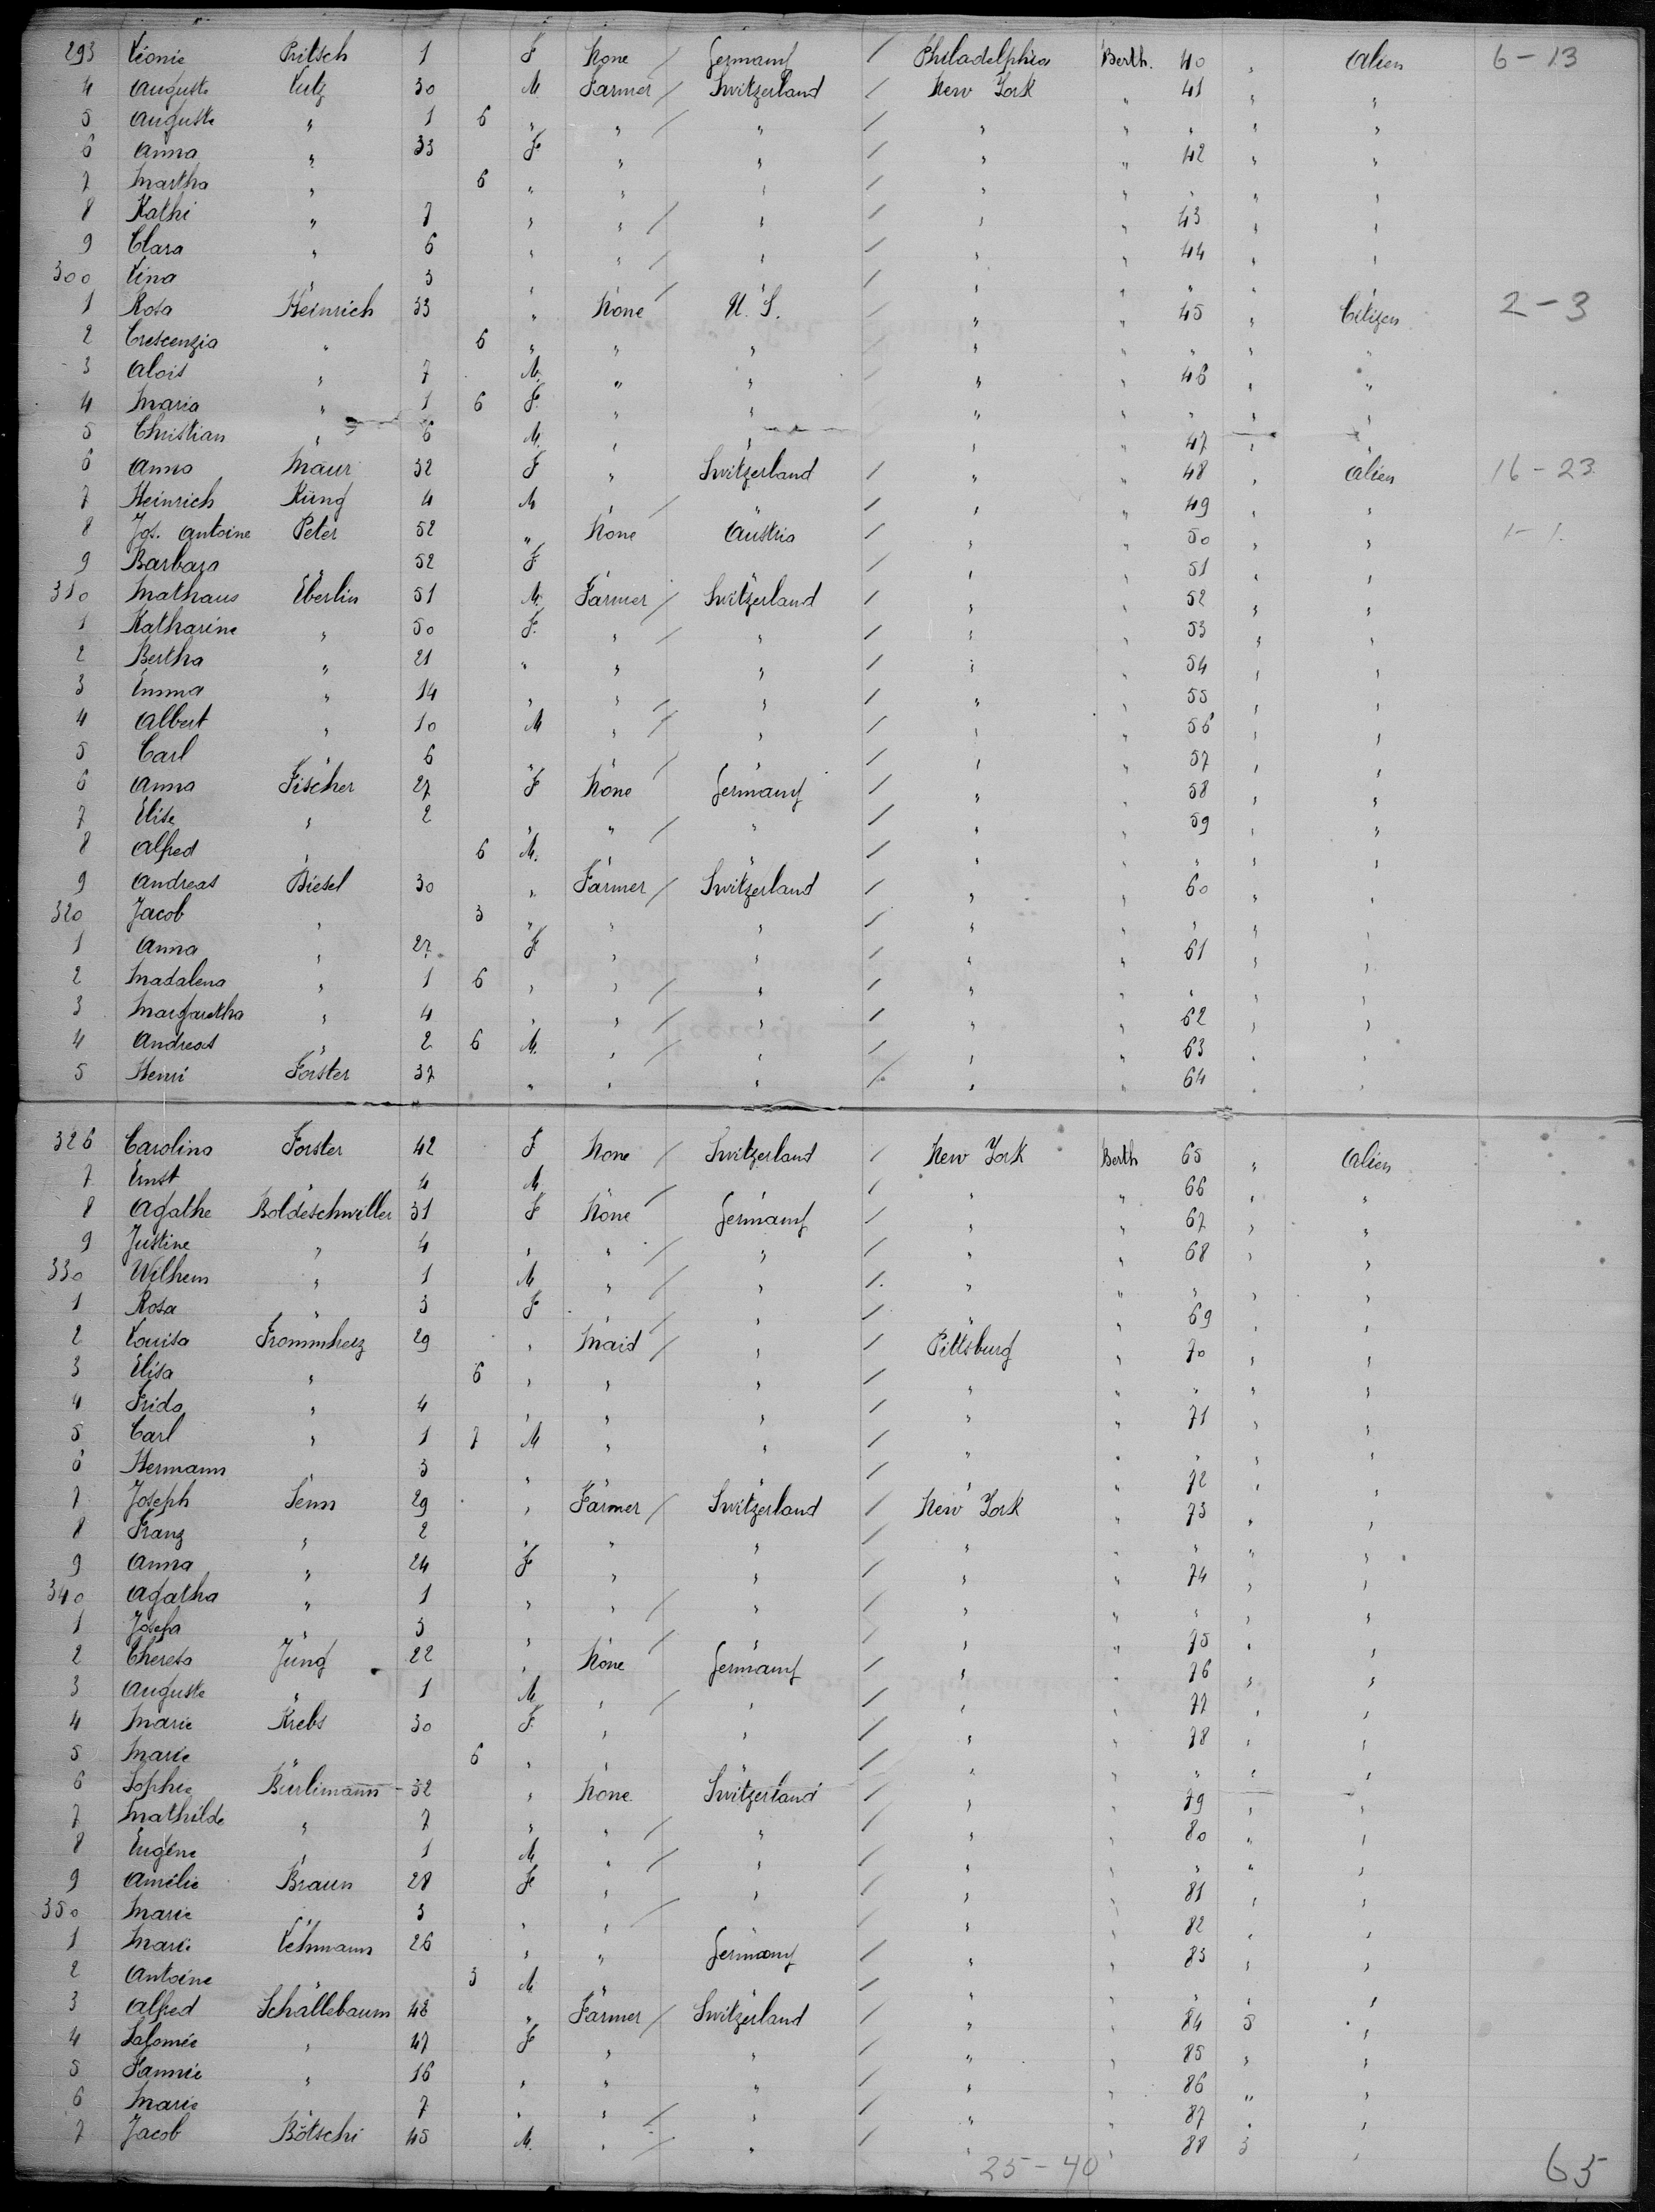 293 Léonie Pritsch 1 F None / Germany / Philadelphia Berth. 40 " Alien 6-13
4 Auguste Lutz 30 M Farmer / Switzerland / New York " 41 " "
5 Auguste " 1 6 " " / " / " " " " "
6 Anna " 33 F " " / " " 42 " "
7 Martha " 6 " " " / " " " " "
8 Kathi " 7 " " / " / " " 43 " "
9 Clara " 6 " " / " / " " 44 " "
300 Lina " 3 " " / " / " " " " "
1 Rosa Heinrich 33 " None U. S. " " 45 " Citizen 2-3
2 Crescenzia " 6 " " " " " " " "
3 Alois " 7 M. " " " " 46 " "
4 Maria " 1 6 F. " " " " " " "
5 Christian " 6 M. " " " " 47 " "
6 Anna Maur 32 F " Switzerland / " " 48 " Alien 16-23
7 Heinrich Küng 4 M " " / " " 49 " "
8 Jos. Antoine Peter 52 " None Austria / " " 50 " " 1-1
9 Barbara " 52 F " " / " " 51 " "
310 Mathaus Eberlin 51 M. Farmer / Switzerland / " " 52 " "
1 Katharine " 50 F. " / " / " " 53 " "
2 Bertha " 21 " " " / " " 54 " "
3 Emma " 14 " " / " / " " 55 " "
4 Albert " 10 M " / " / " " 56 " "
5 Carl " 6 " " / " / " " 57 " "
6 Anna Fischer 27 F None Germany / " " 58 " "
7 Elise " 2 " " / " / " " 59 " "
8 Alfred " 6 M. " " / " " " " "
9 Andreas Biesel 30 " Farmer / Switzerland / " " 60 " "
320 Jacob " 3 " " " / " " " " "
1 Anna " 27 F " " / " " 61 " "
2 Madalena " 1 6 " " / " / " " " " "
3 Margaretha " 4 " " / " / " " 62 " "
4 Andreas " 2 6 M. " / " / " " 63 " "
5 Henri Forster 37 " " " / " " 64 " "
326 Carolina Forster 42 F None / Switzerland / New York Berth 65 " Alien
7 Ernst " 4 M " / " / " " 66 " "
8 Agathe Boldeschwiller 31 F None Germany / " " 67 " "
9 Justine " 4 " " / " / " " 68 " "
330 Wilhem " 1 M " / " / " " " " "
1 Rosa " 3 F " / " / " " 69 " "
2 Louisa Frommherz 29 " Maid / " / Pittsburg " 70 " "
3 Elisa " 6 " " " / " " " " "
4 Frida " 4 " " " / " " 71 " "
5 Carl " 1 7 M " " / " " " " "
6 Hermann " 3 " " " / " " 72 " "
7 Joseph Senn 29 " Farmer / Switzerland / New York " 73 " "
8 Franz " 2 " " " / " " " " "
9 Anna " 24 F " " / " " 74 " "
340 Agatha " 1 " " / " / " " " " "
1 Josefa " 3 " " / " / " " 75 " "
2 Theresa Jung 22 " None Germany / " " 76 " "
3 Auguste " 1 M " / " / " " 77 " "
4 Marie Krebs 30 F. " " / " " 78 " "
5 Marie " 6 " " " / " " " " "
6 Sophie Burlimann 32 " None Switzerland / " " 79 " "
7 Mathilde " 7 " " / " / " " 80 " "
8 Eugène " 1 M " / " / " " " " "
9 Amélie Braun 28 F " " / " " 81 " "
350 Marie " 3 " " / " / " " 82 " "
1 Marie Lehmann 26 " " Germany / " " 83 " "
2 Antoine " 3 M " " / " " " " "
3 Alfred Schällebaum 48 " Farmer / Switzerland / " " 84 5 "
4 Salomée " 47 F " " / " " 85 " "
5 Fannie " 16 " " " / " " 86 " "
6 Marie " 7 " " / " / " " 87 " "
7 Jacob Bötschi 45 M. " / " / " " 88 3 "
25-40 65